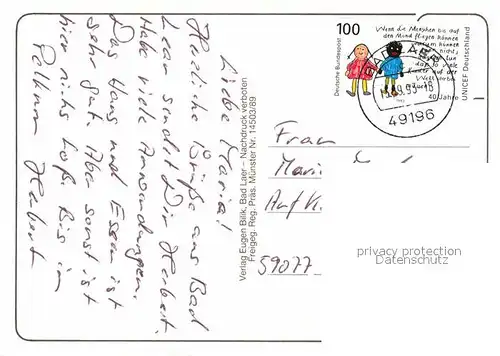 Liebe Maria!
Herzliche Grüße aus Bad
Laer sendet Dir Herbert.
Habe viele Anwendungen.
Das Haus und Essen ist
sehr gut. Aber sonst ist
hier nichts los. Bis in
Herbert
Verlag Eugen Bilik, Bad Laer – Nachdruck verboten
Freigeg. Reg. Präs. Münster Nr. 14503/89
100
Deutsche Bundespost
Wenn die Menschen bis auf
den Mond fliegen können
warum können
so viele
Kinder auf der
40 Jahre
UNICEF Deutschland
BAD LAER
49196
Frau
Mari
Auf K.
59077
privacy protection
Datenschutz